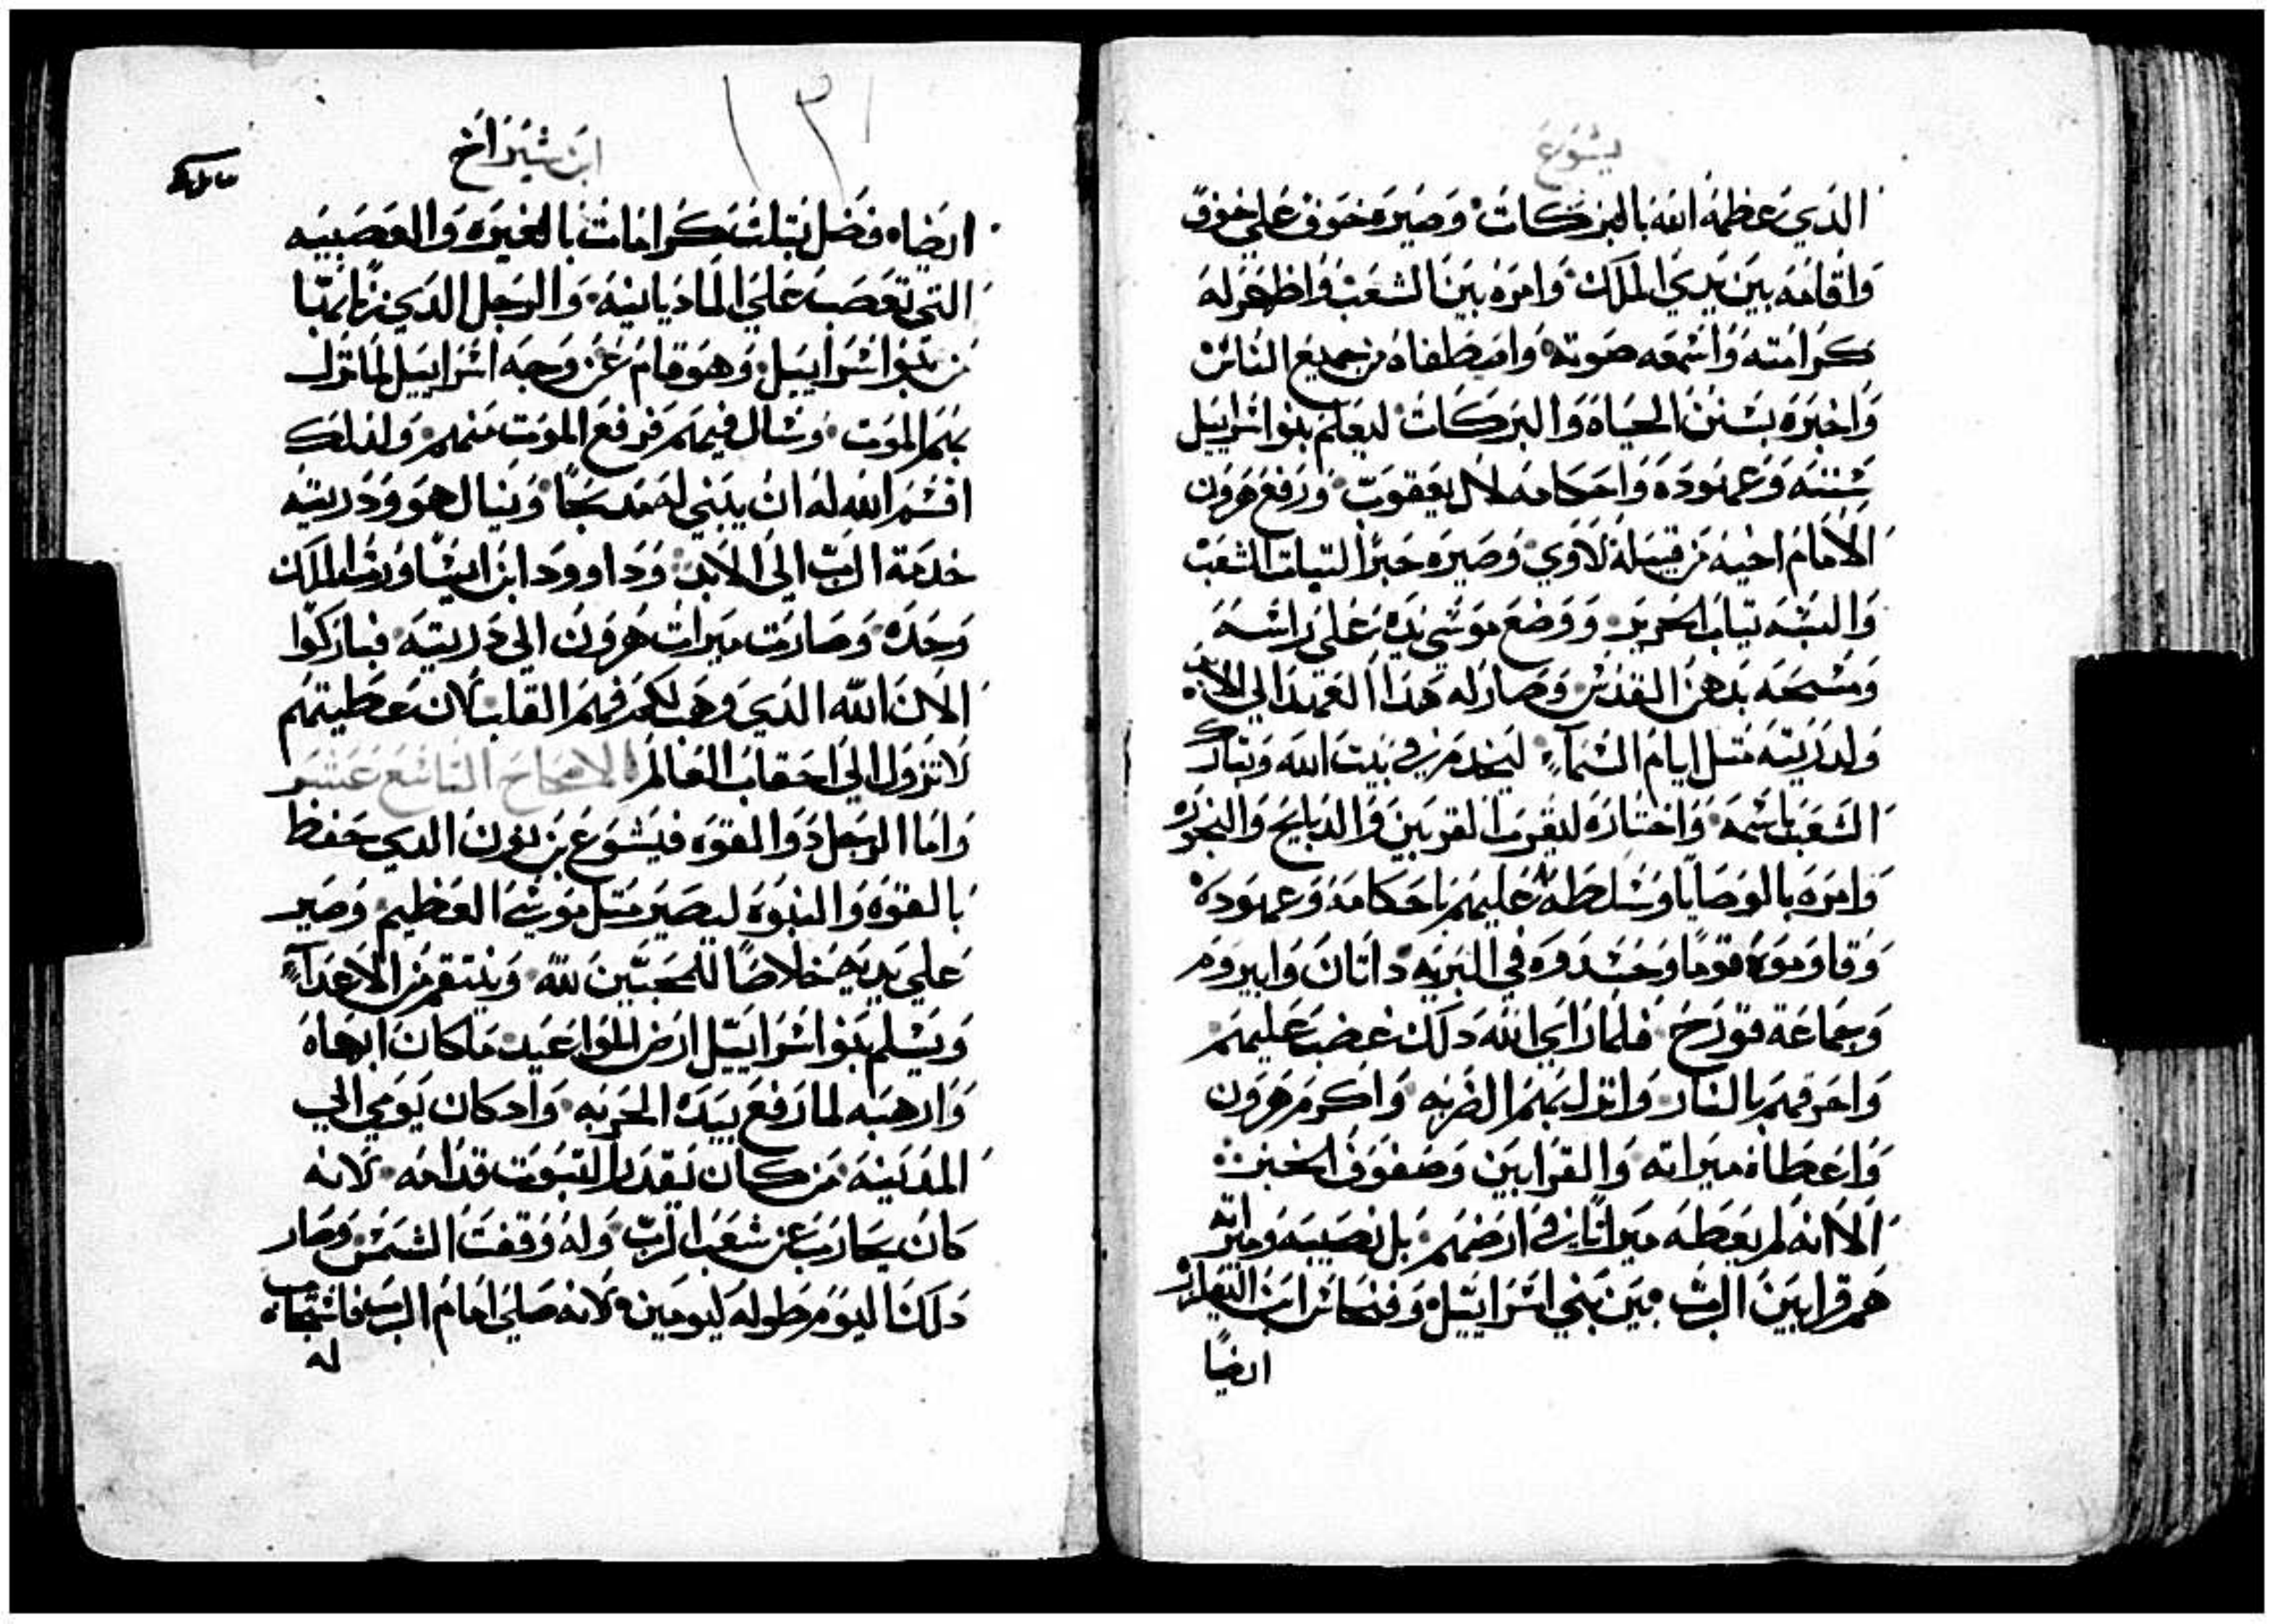 يشوع
الذي عظمه الله بالبركات وصيره خوف علي خوف
واقامه بين يدي الملك وامره بين الشعب واظهر له
كرامته واسمعه صوته واصطفاه من جميع الناس
واخبره بسنن الحياه والبركات ليعلم بنو اسراييل
سننه وعهوده واحكامه لال يعقوب ورفع هرون
الامام اخيه من قبيلة لاوي وصيره حبرا لتبات الشعب
والبسه تياب الحرير ووضع موسي يده علي راسه
ومسحه بدهن القدس وصار له هدا العهد الي الابد
ولدريته متل ايام السماء ليخدمه في بيت الله ويبارك
الشعب باسمه واختاره ليقرب القربين والدبايح والبخور
وامره بالوصايا وسلطه عليهم باحكامه وعهوده
وقاوموه قوما وحسدوه في البريه داتان وابيروم
وجماعة قورح فلما راي الله دلك غضب عليهم
واحرقهم بالنار وانزل بهم الضربه واكرم هرون
واعطاه ميراته والقرابين وصفوف الخبز
الا انه لم يعطه ميراتا في ارضهم بل نصيبه وميراته
هم قرابين الرب بين بني اسراييل وفنحاس ابن اليعازر
ايضا
ابن شيراخ
ايضا فضل بتلت كرامات بالغيره والعصبيه
التي تعصب علي الماديانيه والرجل الدي زنا بها
من بنو اسراييل وهو قام عن وجه اسراييل لما نزل
بهم الموت وسال فيهم فرفع الموت منهم ولدلك
اقسم الله له ان يبني له مدبحا وينال هو ودريته
خدمة الرب الي الابد وداوود ابن ايسا ورث الملك
وحده وصارت ميرات هرون الي دريته فباركوا
الان الله الدي وهب لكم فهم القلب لان عطيتهم
لا تزول الي احقاب العالم الاصحاح التاسع عشر
واما الرجل دو القوه فيشوع بن نون الدي حفظ
بالقوه والنبوه ليصير متل موسي العظيم وصير
علي يديه خلاصا للمحبين لله وينتقم من الاعداء
ويسلم بنو اسراييل ارض المواعيد ما كان ابهاه
وارهبه لما رفع بيده الحربه واد كان يومي الي
المدينه من كان يقدر التبوت قدامه لانه
كان يحارب عن شعب الرب وله وقفت الشمس وصار
دلك اليوم طوله ليومين لانه صلي امام الرب فاستجاب
له